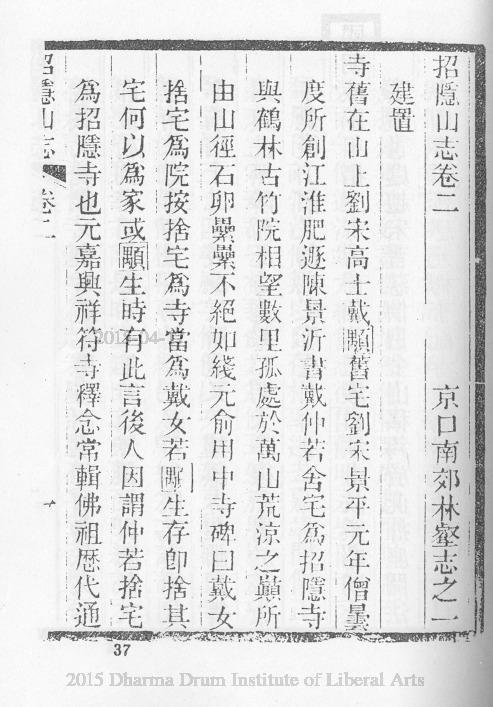 招隱山志卷二
京口南郊林壑志之一
建置
寺舊在山上劉宋高士戴顒舊宅劉宋景平元年僧曇
度所創江淮肥遯陳景沂書戴仲若舍宅爲招隱寺
與鶴林古竹院相望數里孤處於萬山荒涼之巔所
由山徑石卵纍纍不絕如綫元俞用中寺碑曰戴女
捨宅爲院按捨宅爲寺當爲戴女若顒生存卽捨其
宅何以爲家或顒生時有此言後人因謂仲若捨宅
爲招隱寺也元嘉興祥符寺釋念常輯佛祖歷代通
招隱山志
卷二
一
37
2015 Dharma Drum Institute of Liberal Arts